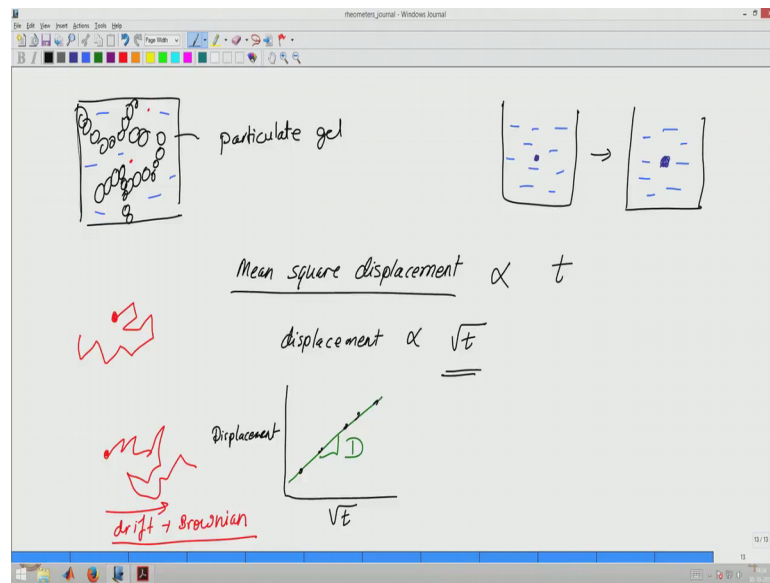 rheometers_journal - Windows Journal
File Edit View Insert Actions Tools Help
Page Width
B I
particulate gel
Mean square displacement ∝ t
displacement ∝ √t
Displacement
D
√t
drift + Brownian
13/13
13